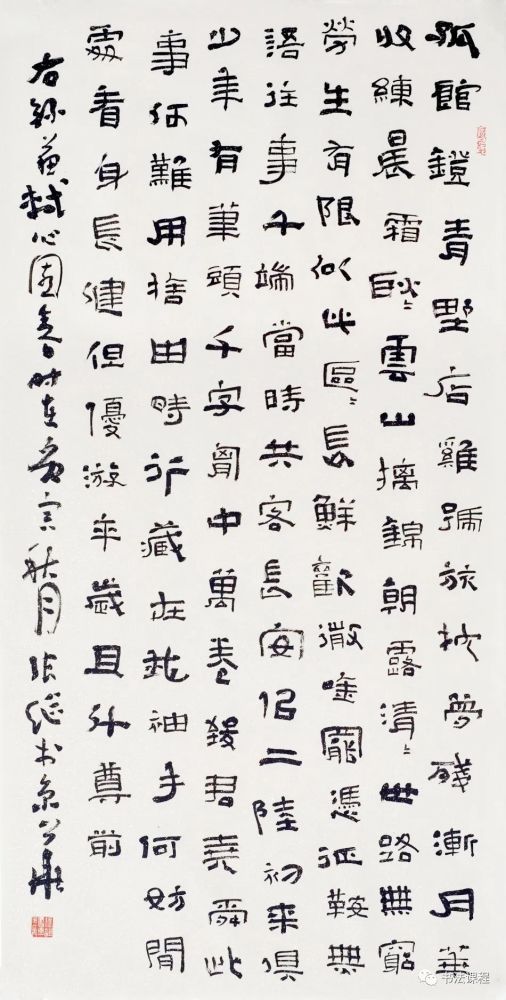 孤館鐙青野店雞號旅枕夢殘漸月華
收練晨霜耿〻雲山摛錦朝露清〻世路無窮
勞生有限似此區〻長鮮歡微唫罷憑征鞍無
語往事千端當時共客長安佀二陸初来俱
少年有筆頭千字胷中萬卷緻君堯舜此
事何難用捨由時行藏在我袖手何妨閒
處看身長健但優游卒歲且斗尊前
右錄蘇軾心園春时在秋月張继书京
书法课程